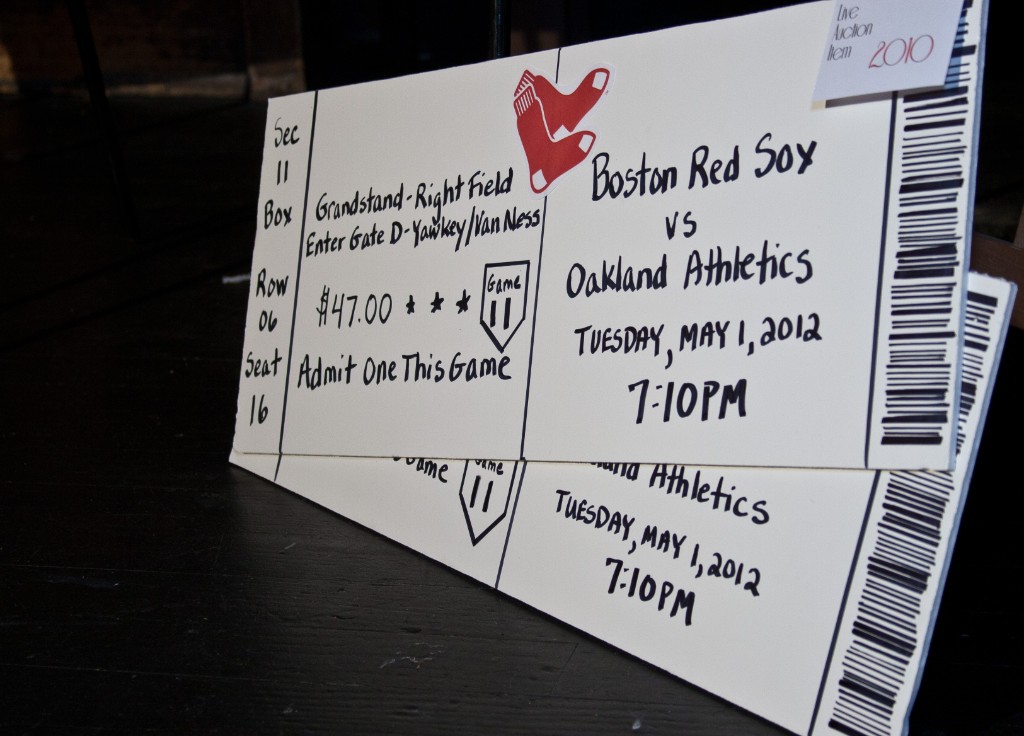 Live
Auction
Item 2010
Sec
11
Box
Row
06
Seat
16
Grandstand-Right Field
Enter Gate D-Yawkey/Van Ness
$47.00 * * *
Game
11
Admit One This Game
Boston Red Sox
vs
Oakland Athletics
TUESDAY, MAY 1, 2012
7:10PM
Game
Game
11
Athletics
TUESDAY, MAY 1, 2012
7:10PM